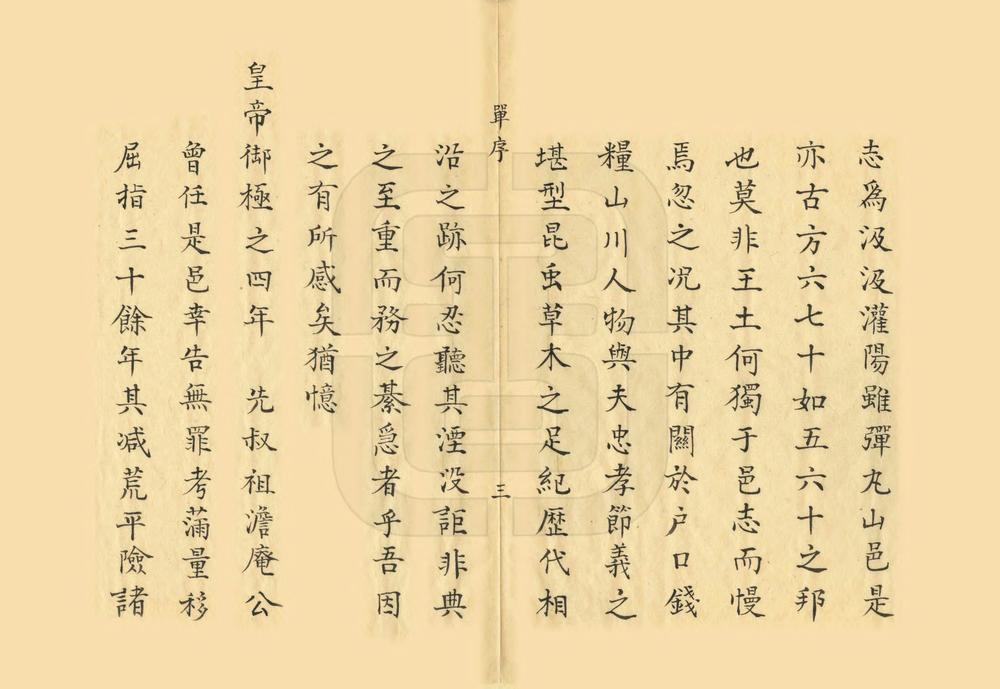 志爲汲汲灌陽雖彈丸山邑是
亦古方六七十如五六十之邦
也莫非王土何獨于邑志而慢
焉忽之况其中有關於户口錢
糧山川人物與夫忠孝節義之
堪型昆䖝草木之足紀歷代相
單序
三
沿之跡何忍聽其湮没詎非典
之至重而務之綦急者乎吾因
之有所感矣猶憶
皇帝御極之四年　先叔祖澹庵公
曾任是邑幸告無罪考滿量移
屈指三十餘年其减荒平險諸